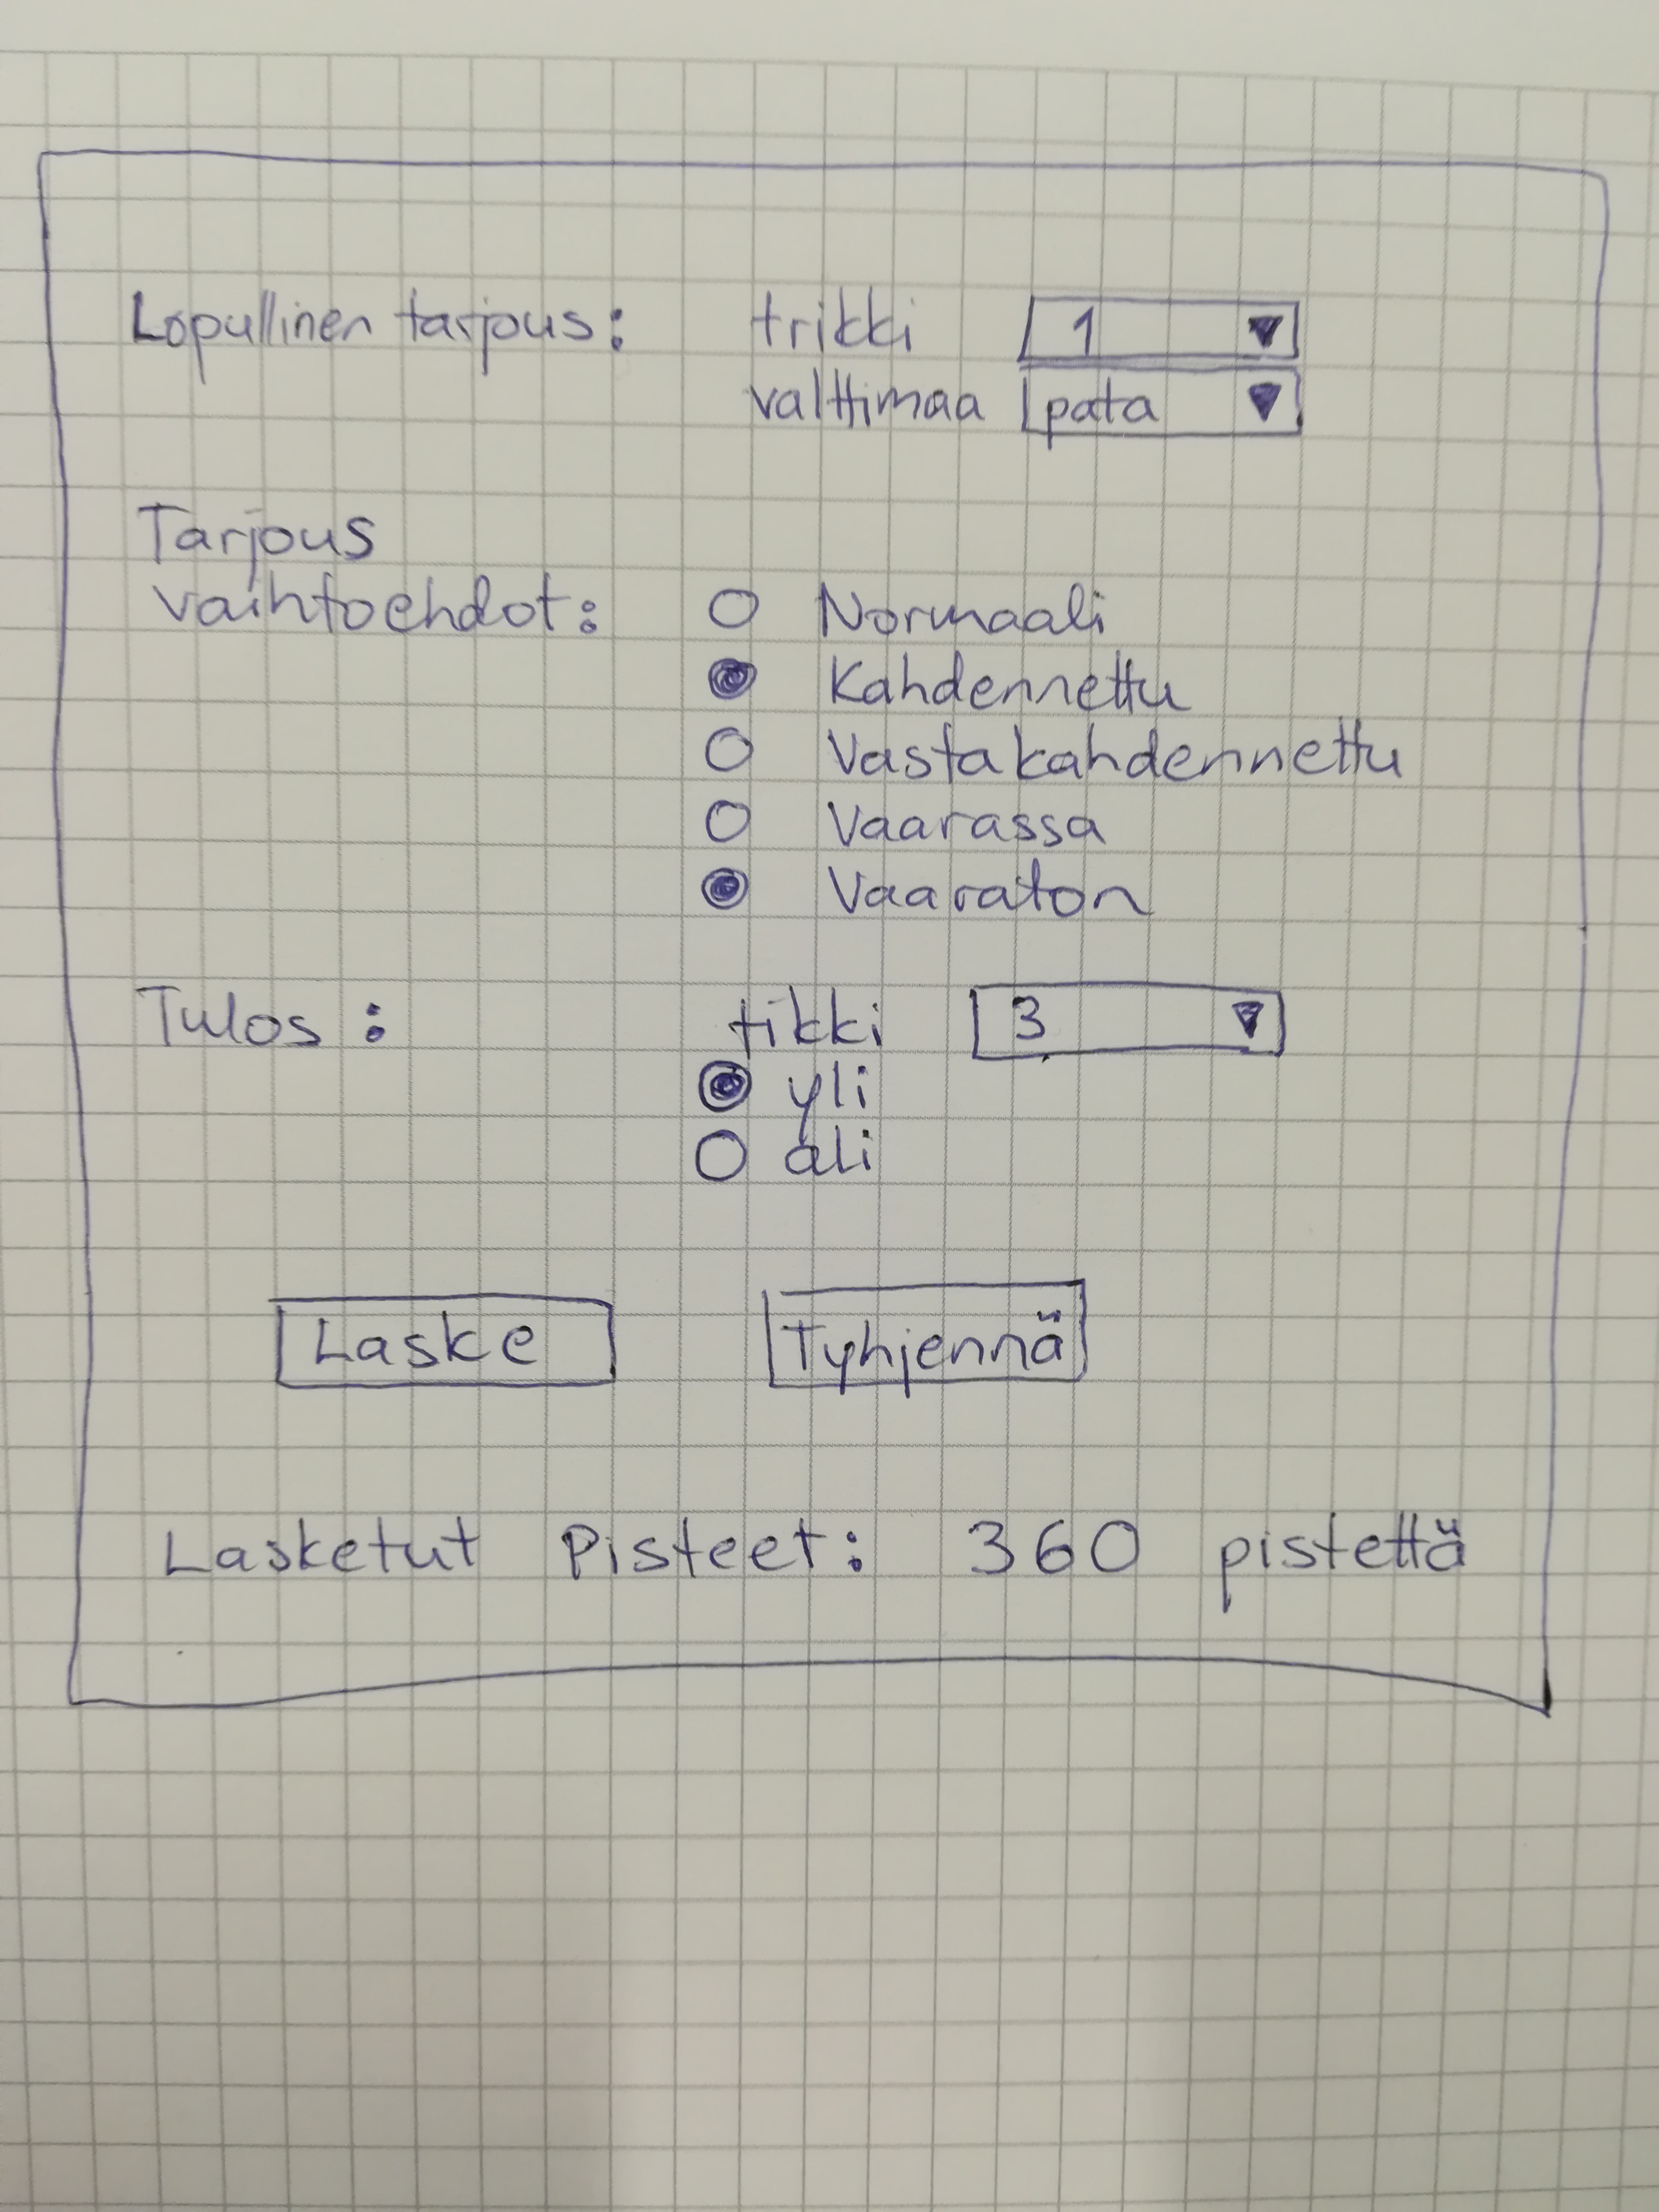 Lopullinen tarjous: trikki 1
valttimaa pata
Tarjous
vaihtoehdot: Normaali
Kahdennettu
Vastakahdennettu
Vaarassa
Vaaraton
Tulos: tikki 3
yli
ali
Laske Tyhjennä
Lasketut Pisteet: 360 pistettä